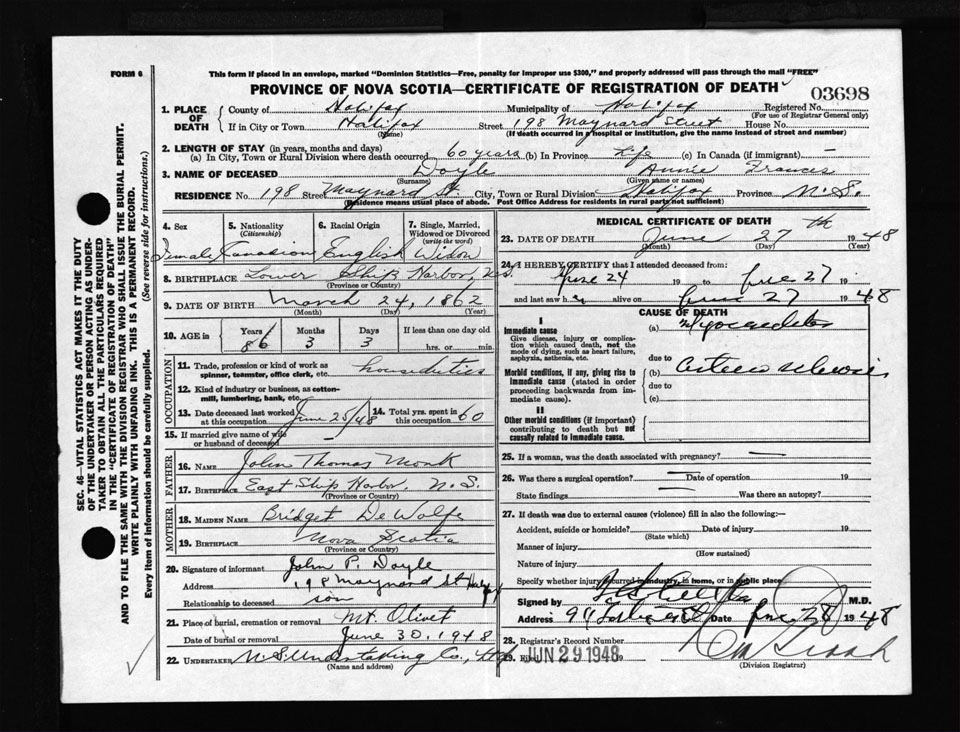 FORM 6
This form if placed in an envelope, marked "Dominion Statistics—Free, penalty for improper use $300," and properly addressed will pass through the mail "FREE"
PROVINCE OF NOVA SCOTIA—CERTIFICATE OF REGISTRATION OF DEATH
03698
1. PLACE OF DEATH County of Halifax Municipality of Halifax Registered No.
(For use of Registrar General only)
If in City or Town Halifax Street 198 Maynard Street House No.
(Name) (If death occurred in hospital or institution, give the name instead of street and number)
2. LENGTH OF STAY (in years, months and days)
(a) In City, Town or Rural Division where death occurred 60 years (b) In Province Life (c) In Canada (if immigrant) —
3. NAME OF DECEASED Doyle Annie Frances
(Surname) (Given name or names)
RESIDENCE No. 198 Street Maynard St. City, Town or Rural Division Halifax Province N.S.
(Residence means usual place of abode. Post Office Address for residents in rural parts not sufficient)
4. Sex 5. Nationality 6. Racial Origin 7. Single, Married, Widowed or Divorced
(Citizenship) (write the word)
Female Canadian English Widow
8. BIRTHPLACE Lower Ship Harbor, N.S.
(Province or Country)
9. DATE OF BIRTH March 24, 1862
(Month) (Day) (Year)
10. AGE in Years Months Days If less than one day old
86 3 3 hrs. or min.
OCCUPATION
11. Trade, profession or kind of work as spinner, teamster, office clerk, etc. house duties
12. Kind of industry or business, as cotton-mill, lumbering, bank, etc.
13. Date deceased last worked at this occupation June 25/48 14. Total yrs. spent in this occupation 60
15. If married give name of wife or husband of deceased —
FATHER
16. NAME John Thomas Monk
17. BIRTHPLACE East Ship Harbor, N.S.
(Province or Country)
MOTHER
18. MAIDEN NAME Bridget DeWolfe
19. BIRTHPLACE Nova Scotia
(Province or Country)
20. Signature of informant John P. Doyle
Address 198 Maynard St
Relationship to deceased son
21. Place of burial, cremation or removal Mt. Olivet
Date of burial or removal June 30, 1948
22. UNDERTAKER N.S. Undertaking Co., Ltd
(Name and address)
MEDICAL CERTIFICATE OF DEATH
23. DATE OF DEATH June 27th 1948
(Month) (Day) (Year)
24. I HEREBY CERTIFY that I attended deceased from:
June 24 19 to June 27 19
and last saw her alive on June 27 1948
CAUSE OF DEATH
I
Immediate cause (a) Myocarditis
Give disease, injury or complication which caused death, not the mode of dying, such as heart failure, asphyxia, asthenia, etc.
due to
Morbid conditions, if any, giving rise to immediate cause (stated in order proceeding backwards from immediate cause). (b) Arterio sclerosis
due to
(c)
II
Other morbid conditions (if important) contributing to death but not causally related to immediate cause.
25. If a woman, was the death associated with pregnancy? —
26. Was there a surgical operation? — Date of operation 19
State findings — Was there an autopsy?
27. If death was due to external causes (violence) fill in also the following:—
Accident, suicide or homicide? Date of injury 19
(State which)
Manner of injury
(How sustained)
Nature of injury
Specify whether injury occurred in industry, in home, or in public place
Signed by M.D.
Address Date June 28 1948
28. Registrar's Record Number
29. Filed JUN 29 1948 19
(Division Registrar)
SEC. 46—VITAL STATISTICS ACT MAKES IT THE DUTY
OF THE UNDERTAKER OR PERSON ACTING AS UNDER-
TAKER TO OBTAIN ALL THE PARTICULARS REQUIRED
IN THE "CERTIFICATE OF REGISTRATION OF DEATH"
AND TO FILE THE SAME WITH THE DIVISION REGISTRAR WHO SHALL ISSUE THE BURIAL PERMIT.
WRITE PLAINLY WITH UNFADING INK. THIS IS A PERMANENT RECORD.
Every item of information should be carefully supplied. (See reverse side for instructions.)